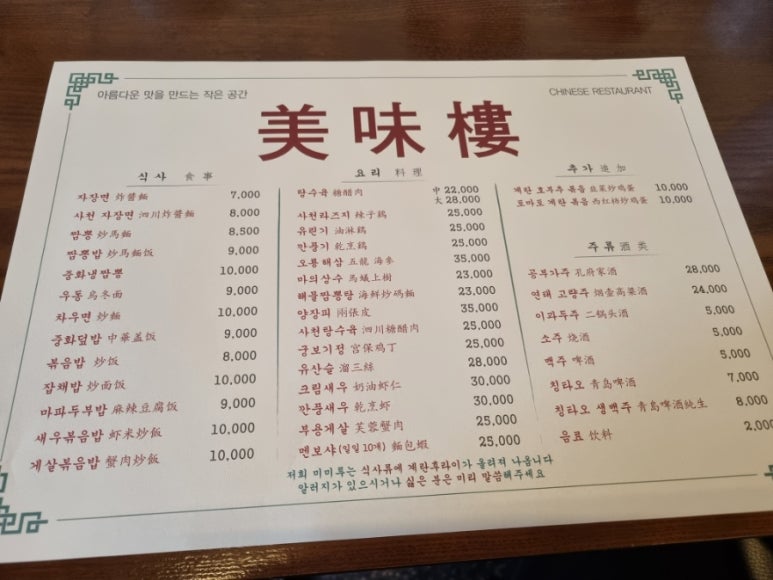 아름다운 맛을 만드는 작은 공간
CHINESE RESTAURANT
美味樓
식사 食事
자장면 炸醬麵 7,000
사천 자장면 泗川炸醬麵 8,000
짬뽕 炒馬麵 8,500
짬뽕밥 炒馬麵饭 9,000
중화냉짬뽕 10,000
우동 烏冬面 9,000
차우면 炒麵 10,000
중화덮밥 中華盖饭 9,000
볶음밥 炒饭 8,000
잡채밥 炒面饭 10,000
마파두부밥 麻辣豆腐饭 9,000
새우볶음밥 虾米炒飯 10,000
게살볶음밥 蟹肉炒飯 10,000
요리 料理
탕수육 糖醋肉 中 22,000
大 28,000
사천라즈지 辣子鷄 25,000
유린기 油淋鷄 25,000
깐풍기 乾烹鷄 25,000
오룡해삼 五龍 海參 35,000
마의상수 馬蟻上樹 23,000
해물짬뽕탕 海鮮炒碼麵 23,000
양장피 兩張皮 35,000
사천탕수육 泗川糖醋肉 25,000
궁보기정 宮保鸡丁 25,000
유산슬 溜三絲 28,000
크림새우 奶油虾仁 30,000
깐풍새우 乾烹虾 30,000
부용게살 芙蓉蟹肉 25,000
멘보샤(일일 10개) 麵包蝦 25,000
추가 追加
계란 호부추 볶음 韭菜炒鸡蛋 10,000
토마토 계란 볶음 西红柿炒鸡蛋 10,000
주류 酒类
공부가주 孔府家酒 28,000
연태 고량주 烟台高粱酒 24,000
이과두주 二锅头酒 5,000
소주 烧酒 5,000
맥주 啤酒 5,000
칭타오 青岛啤酒 7,000
칭타오 생맥주 青岛啤酒纯生 8,000
음료 饮料 2,000
저희 미미루는 식사류에 계란후라이가 올려져 나옵니다
알러지가 있으시거나 싫은 분은 미리 말씀해주세요